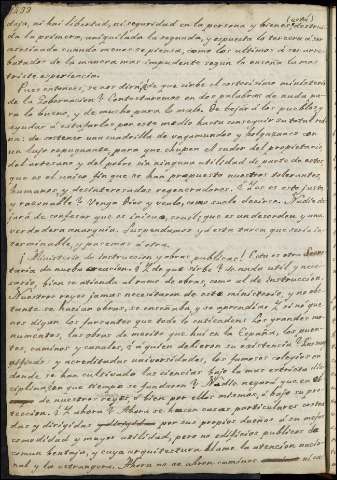 daja, ni hai libertad, ni seguridad en la persona y bienes, destrui-
da la primera, aniquilada la segunda, y espuesta la tercera a ser
asesinada cuando menos se piensa, como los ultimos á ser arre-
batados de la manera mas impudente segun la enseña la mas
triste esperiencia.
Pues entonces, se nos dirá, de que sirve el costosisimo ministerio
de la Gobernacion? Contestaremos en dos palabras: de nada pa-
ra lo bueno, y de mucho para lo malo. De bejar á los pueblos, y
ayudar á estafarlos por este medio hasta conseguir su total rui-
na: de sostener una cuadrilla de vagamundos y holgazanes con
un lujo repugnante, para que chupen el sudor del propietario
del artesano, y del pobre sin ninguna utilidad de parte de estos,
que es el unico fin que se han propuesto nuestros tolerantes,
humanos, y desinteresados regeneradores. ¿Y es esto justo
y razonable? Venga Dios y vealo, como suele decirse. Nadie de-
jará de confesar que es iniquo, cruel; que es un desorden, y una
verdadera anarquia. Suspendamos ya esta tarea que seria in-
terminable, y pasemos á otra.
¡Ministerio de instruccion y obras publicas! Esta es otra Secre-
taria de nueva creacion. ¿Y de que sirbe? de nada util y nece-
sario, bien se atienda al ramo de obras, como al de instruccion.
Nuestros reyes jamas necesitaron de este ministerio, y no obs-
tante se hacian obras, se enseñaba y se aprendia. Y sino que
nos digan los farsantes que todo lo entienden: Los grandes mo-
numentos, las obras de merito que hai en la España, los puer-
tos, caminos y canales, ¿á quien debieron su existencia? Las mag-
nificas y acreditadas universidades, los famosos colegios en
donde se han cultivado las ciencias bajo la mas estricta dis-
ciplina ¿en que tiempo se fundaron? Nadie negará que en el
de nuestros reyes, ó bien por ellos mismos, ó bajo su pro-
teccion. ¿Y ahora? Ahora se hacen casas particulares costea-
das y dirigidas por sus propios dueños á su mejor
comodidad y mayor utilidad, pero no edificios publicos de
comun ventaja, y cuya arquitectura llame la atencion nacio-
nal y la estrangera. Ahora no se abren caminos al co-